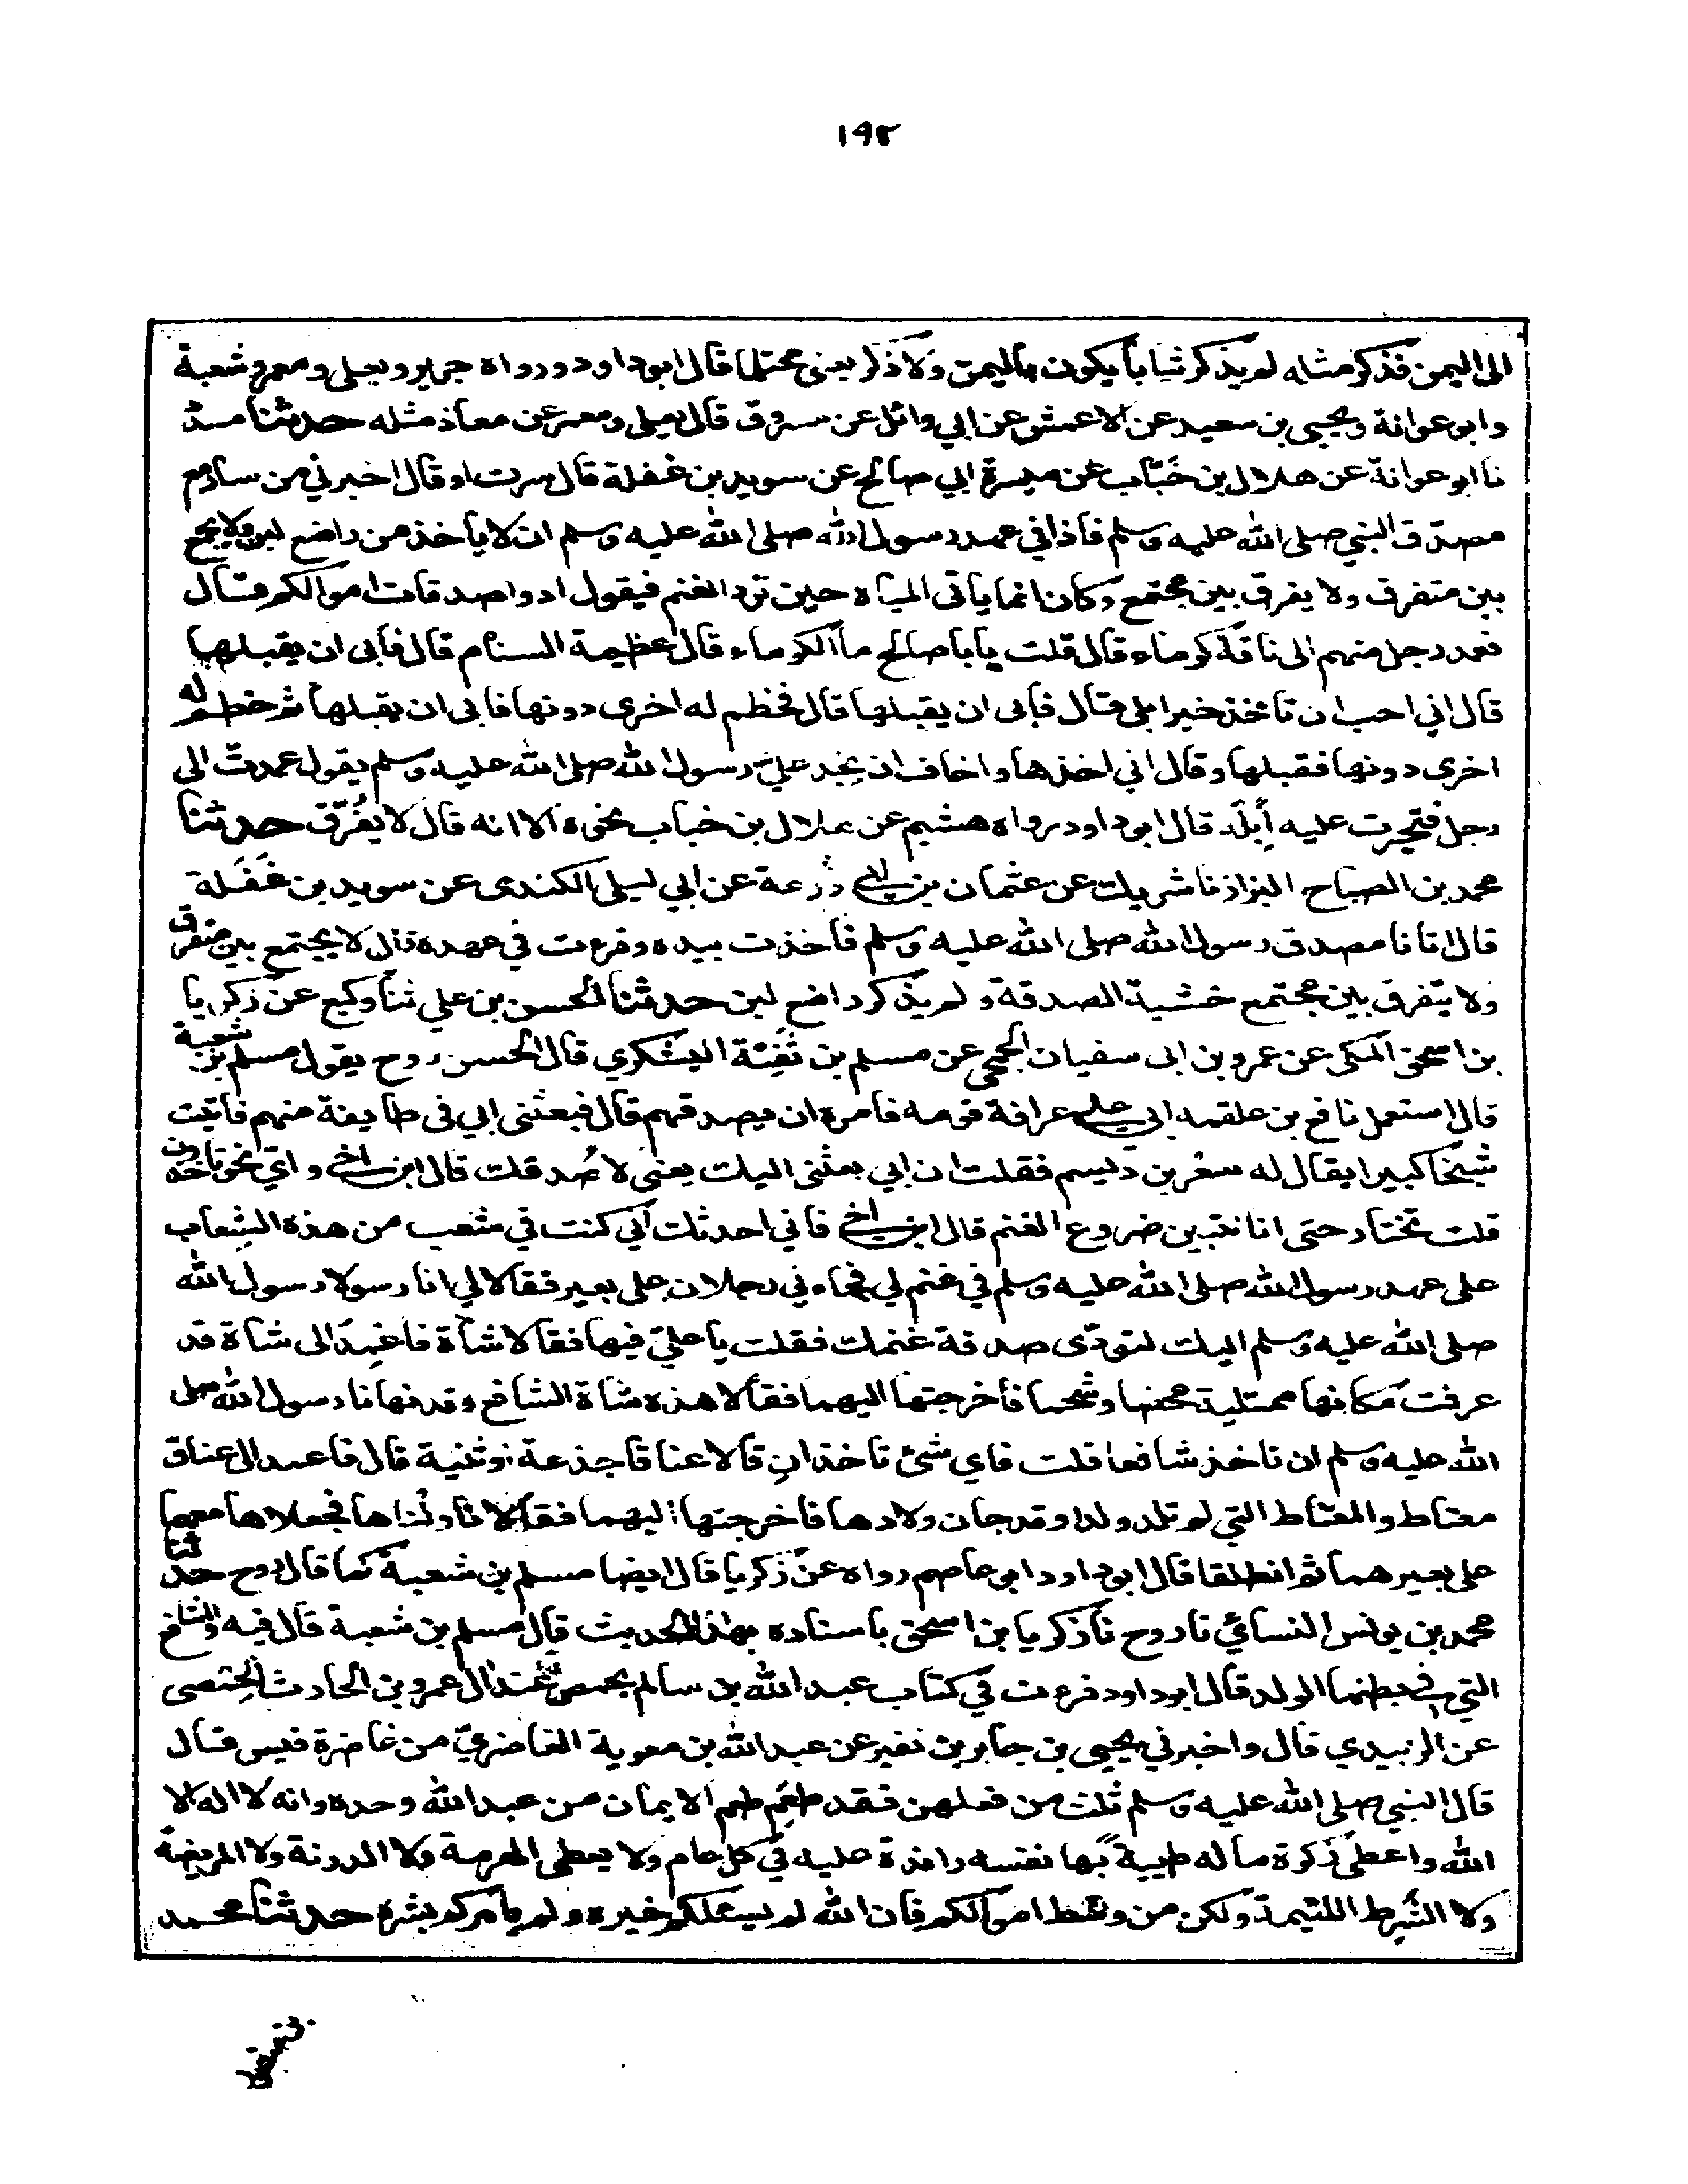 ١٩٢
الى اليمن فذكر مثله لم يذكر ثيابا يكون باليمن ولا ذكر يعني محتلما قال ابو داود ورواه جرير ويعلى ومعمر وشعبة
وابو عوانة ويحيى بن سعيد عن الاعمش عن ابي وائل عن مسروق قال يعلى ومعمر عن معاذ مثله حدثنا مسدد
نا ابو عوانة عن هلال بن خَبّاب عن ميسرة ابي صالح عن سويد بن غفلة قال سرت او قال اخبرني من سار مع
مصدّق النبي صلى الله عليه وسلم فاذا في عهد رسول الله صلى الله عليه وسلم ان لا ياخذ من راضع لبن ولا يجمع
بين متفرق ولا يفرق بين مجتمع وكان انما ياتي المياه حين ترد الغنم فيقول ادوا صدقات اموالكم قال
فعمد رجل منهم الى ناقة كوماء قال قلت يابا صالح ما الكوماء قال عظيمة السنام قال فابى ان يقبلها
قال اني احب ان تاخذ خير ابلي قال فابى ان يقبلها قال فخطم له اخرى دونها فابى ان يقبلها ثم خطم له
اخرى دونها فقبلها وقال اني اخذها واخاف ان يجد عليّ رسول الله صلى الله عليه وسلم يقول عمدت الى
رجل فتخيرت عليه أبله قال ابو داود رواه هشيم عن هلال بن خباب نحوه الا انه قال لا يُفَرّق حدثنا
محمد بن الصباح البزاز نا شريك عن عثمان بن ابي زرعة عن ابي ليلى الكندى عن سويد بن غَفَلة
قال اتانا مصدق رسول الله صلى الله عليه وسلم فأخذت بيده وقرءت في عهده قال لا يجتمع بين متفرق
ولا يتفرق بين مجتمع خشية الصدقة ولم يذكر راضع لبن حدثنا الحسن بن علي ثنا وكيع عن زكريا
بن اسحق المكى عن عمرو بن ابى سفيان الجمحي عن مسلم بن ثَفِنَة اليشكري قال الحسن روح يقول مسلم بن شعبة
قال استعمل نافع بن علقمه ابي على عرافة قومه فامره ان يصدقهم قال فبعثنى ابي فى طايفة منهم فاتيت
شيخا كبيرا يقال له سعر بن ديسم فقلت ان ابي بعثني اليك يعنى لاُصدقك قال ابن اخي واي نحو تاخذون
قلت نختار حتى انا نتبين ضروع الغنم قال ابن اخي فاني احدثك أني كنت في شعب من هذه الشِعاب
على عهد رسول الله صلى الله عليه وسلم في غنم لي فجاءني رجلان على بعير فقالا لي انا رسولا رسول الله
صلى الله عليه وسلم اليك لتودّى صدقة غنمك فقلت ما عليّ فيها فقالا شاة فاعمِد الى شاة قد
عرفت مكانها ممتلية محضا وشحما فأخرجتها اليهما فقالا هذه شاة الشافع وقد نهانا رسول الله صلى
الله عليه وسلم ان ناخذ شافعا قلت فاي شئ تاخذانِ قالا عناقا جذعة او ثنية قال فاعمد الى عناق
معتاط والمعتاط التي لم تلد ولدا وقد حان ولادها فاخرجتها اليهما فقالا ناولناها فجعلاها معهما
على بعيرهما ثم انطلقا قال ابو داود ابو عاصم رواه عن زكريا قال ايضا مسلم بن شعبة كما قال روح حدثنا
محمد بن يونس النسائي نا روح نا زكريا بن اسحق باسناده بهذا الحديث قال مسلم بن شعبة قال فيه والشافع
التي في بطنها الولد قال ابو داود قرءت في كتاب عبد الله بن سالم بحمص عند ال عمرو بن الحارث الحمصى
عن الزبيدي قال واخبرني يحيى بن جابر بن نفير عن عبد الله بن معوية الغاضريّ من غاضرة قيس قال
قال النبي صلى الله عليه وسلم ثلث من فعلهن فقد طعِم طعم الايمان من عبد الله وحده وانه لا اله الا
الله واعطى زكوة ماله طيبة بها نفسه رافدة عليه في كل عام ولا يعطي الهرمة ولا الدرنة ولا المريضة
ولا الشَرط اللئيمة ولكن من وسط اموالكم فان الله لم يسئلكم خيره ولم يامركم بشره حدثنا محمد